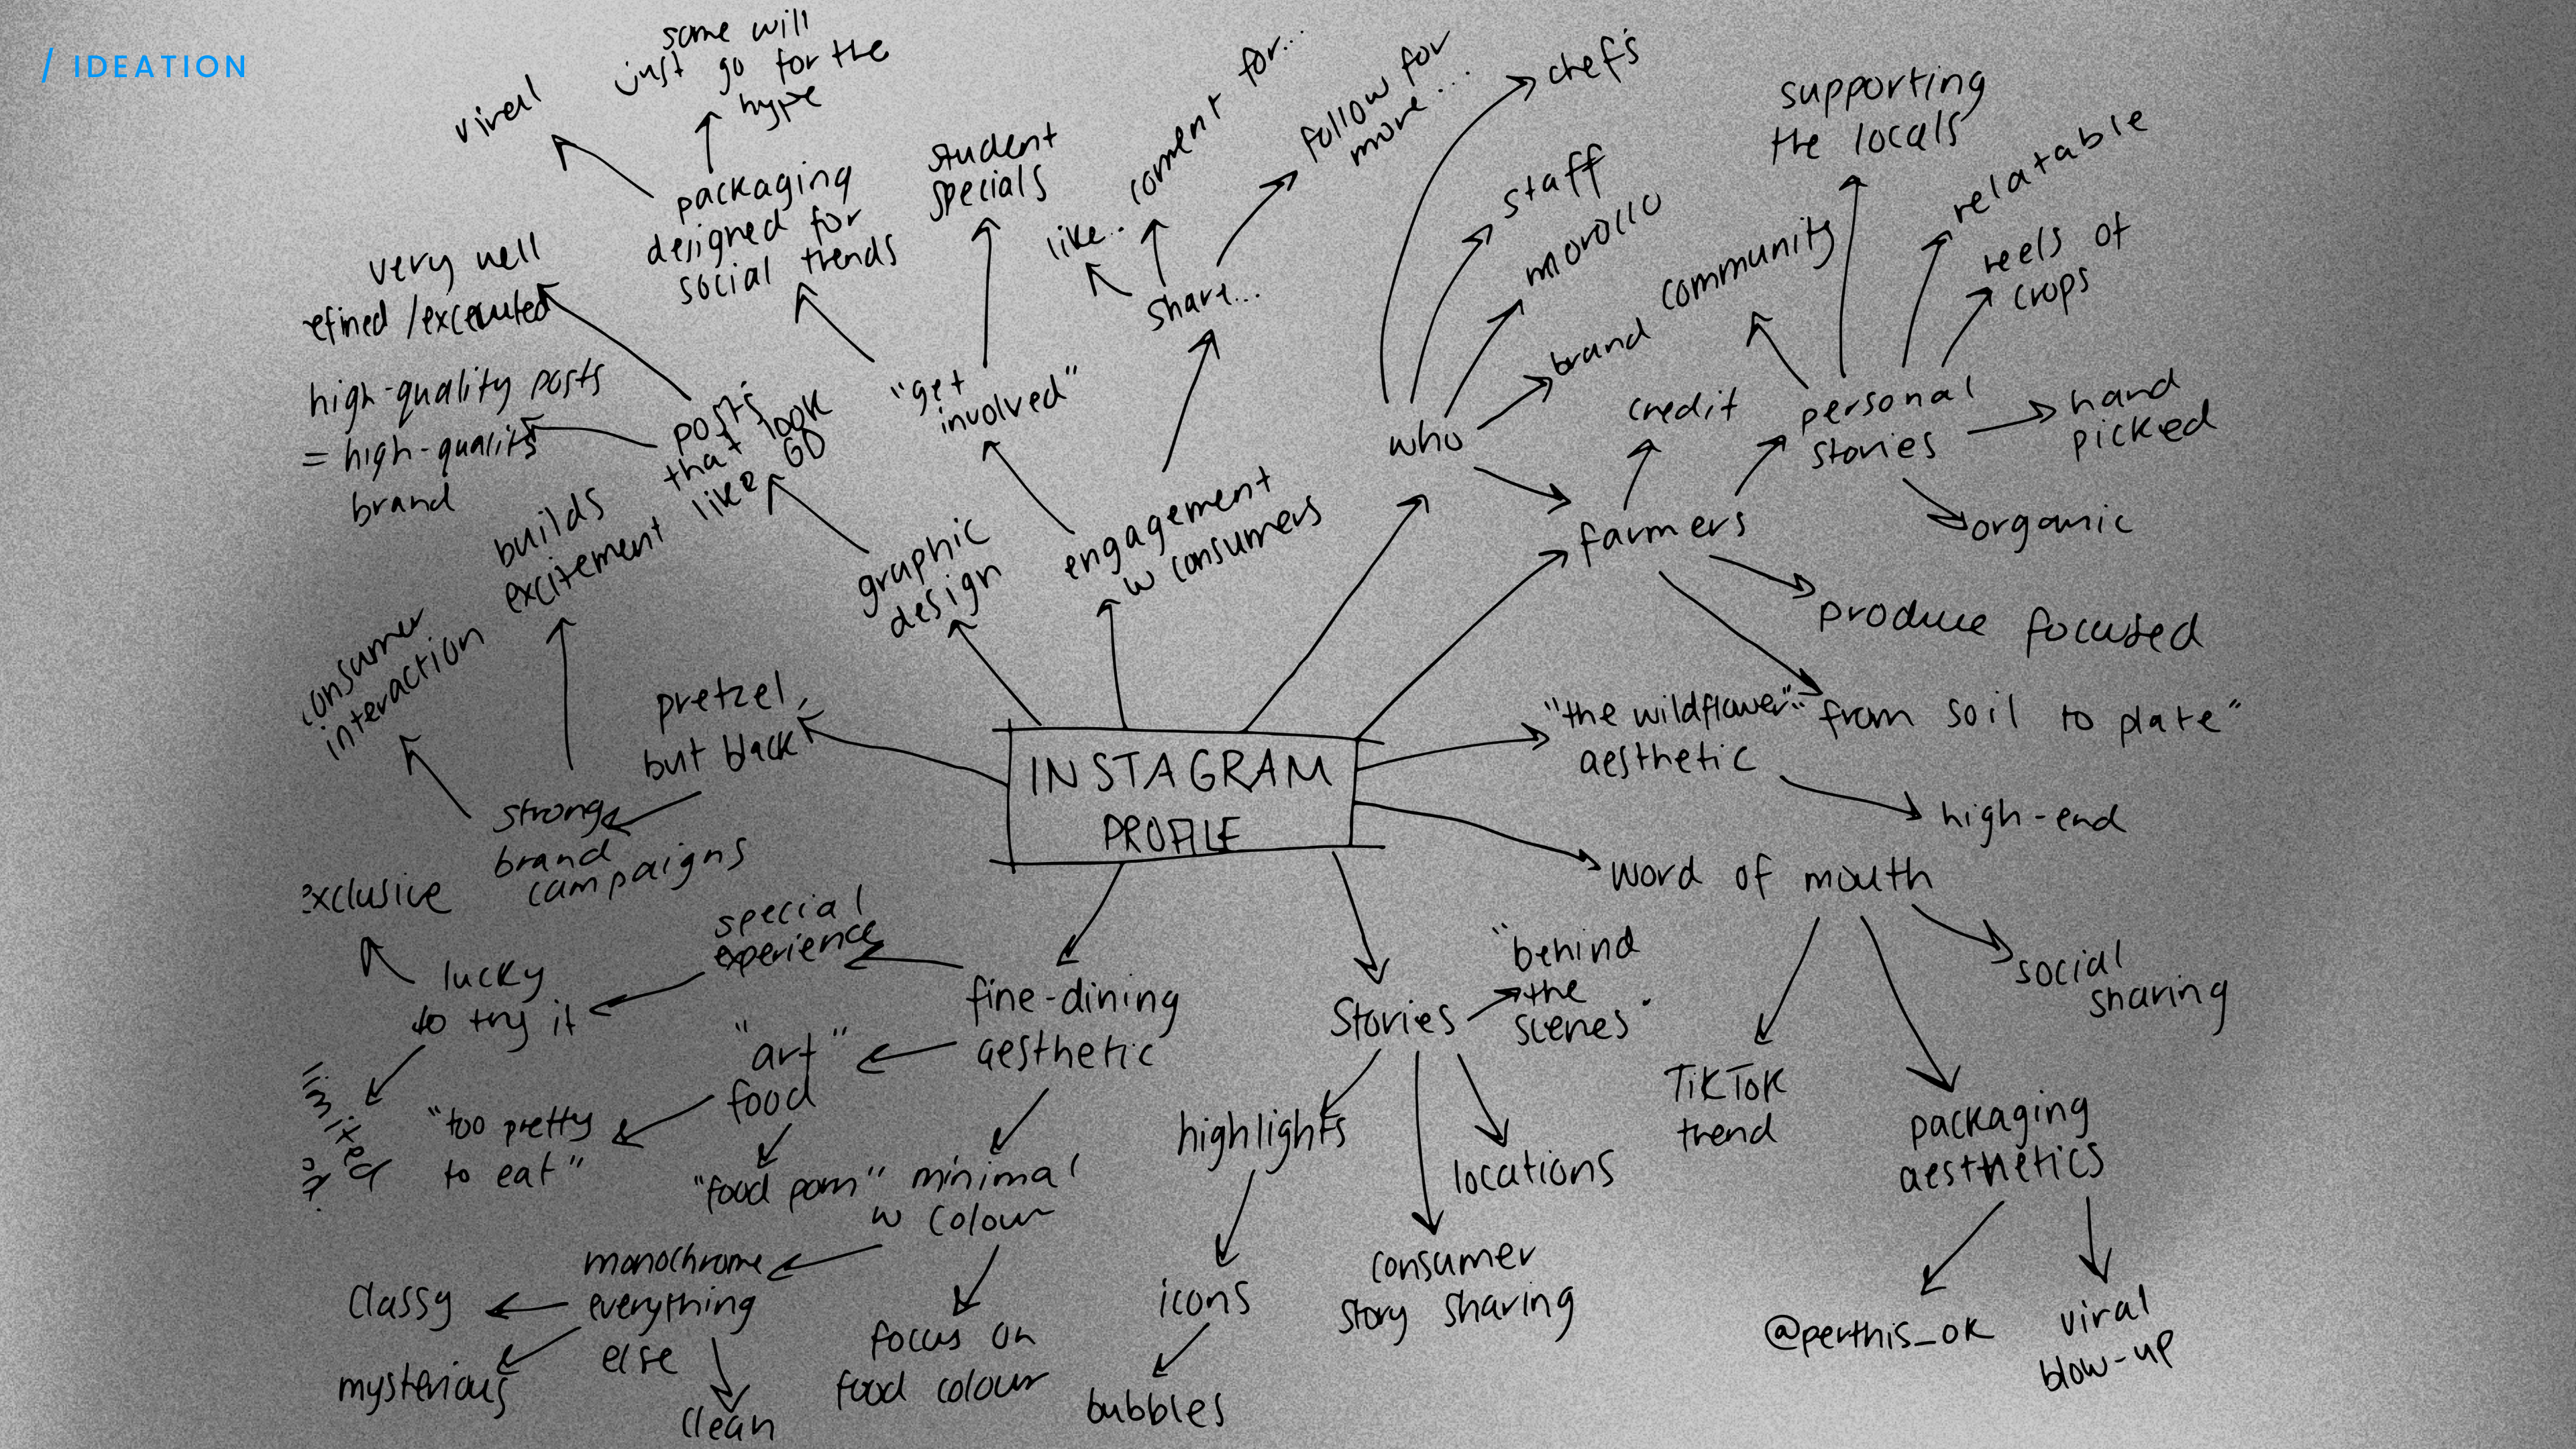 / IDEATION
viral
some will
just go for the
hype
packaging
designed for
social trends
student
specials
like..
comment for...
follow for
more...
share...
very well
refined /excecuted
high-quality posts
= high-quality
brand
posts
that look
like GD
"get
involved"
graphic
design
engagement
w consumers
builds
excitement
consumer
interaction
pretzel,
but black
strong
brand
campaigns
INSTAGRAM
PROFILE
chef's
staff
morollo
brand
who
farmers
credit
community
supporting
the locals
relatable
reels of
crops
personal
stories
hand
picked
organic
produce focused
"from soil to plate"
"the wildflower"
aesthetic
high-end
word of mouth
social
sharing
TikTok
trend
packaging
aesthetics
@perthis_ok
viral
blow-up
Stories
"behind
the
scenes"
highlights
locations
icons
consumer
story sharing
bubbles
fine-dining
aesthetic
special
experience
lucky
to try it
exclusive
limited
"art"
food
"too pretty
to eat"
"food porn"
minimal
w colour
monochrome
everything
else
classy
mysterious
clean
focus on
food colour